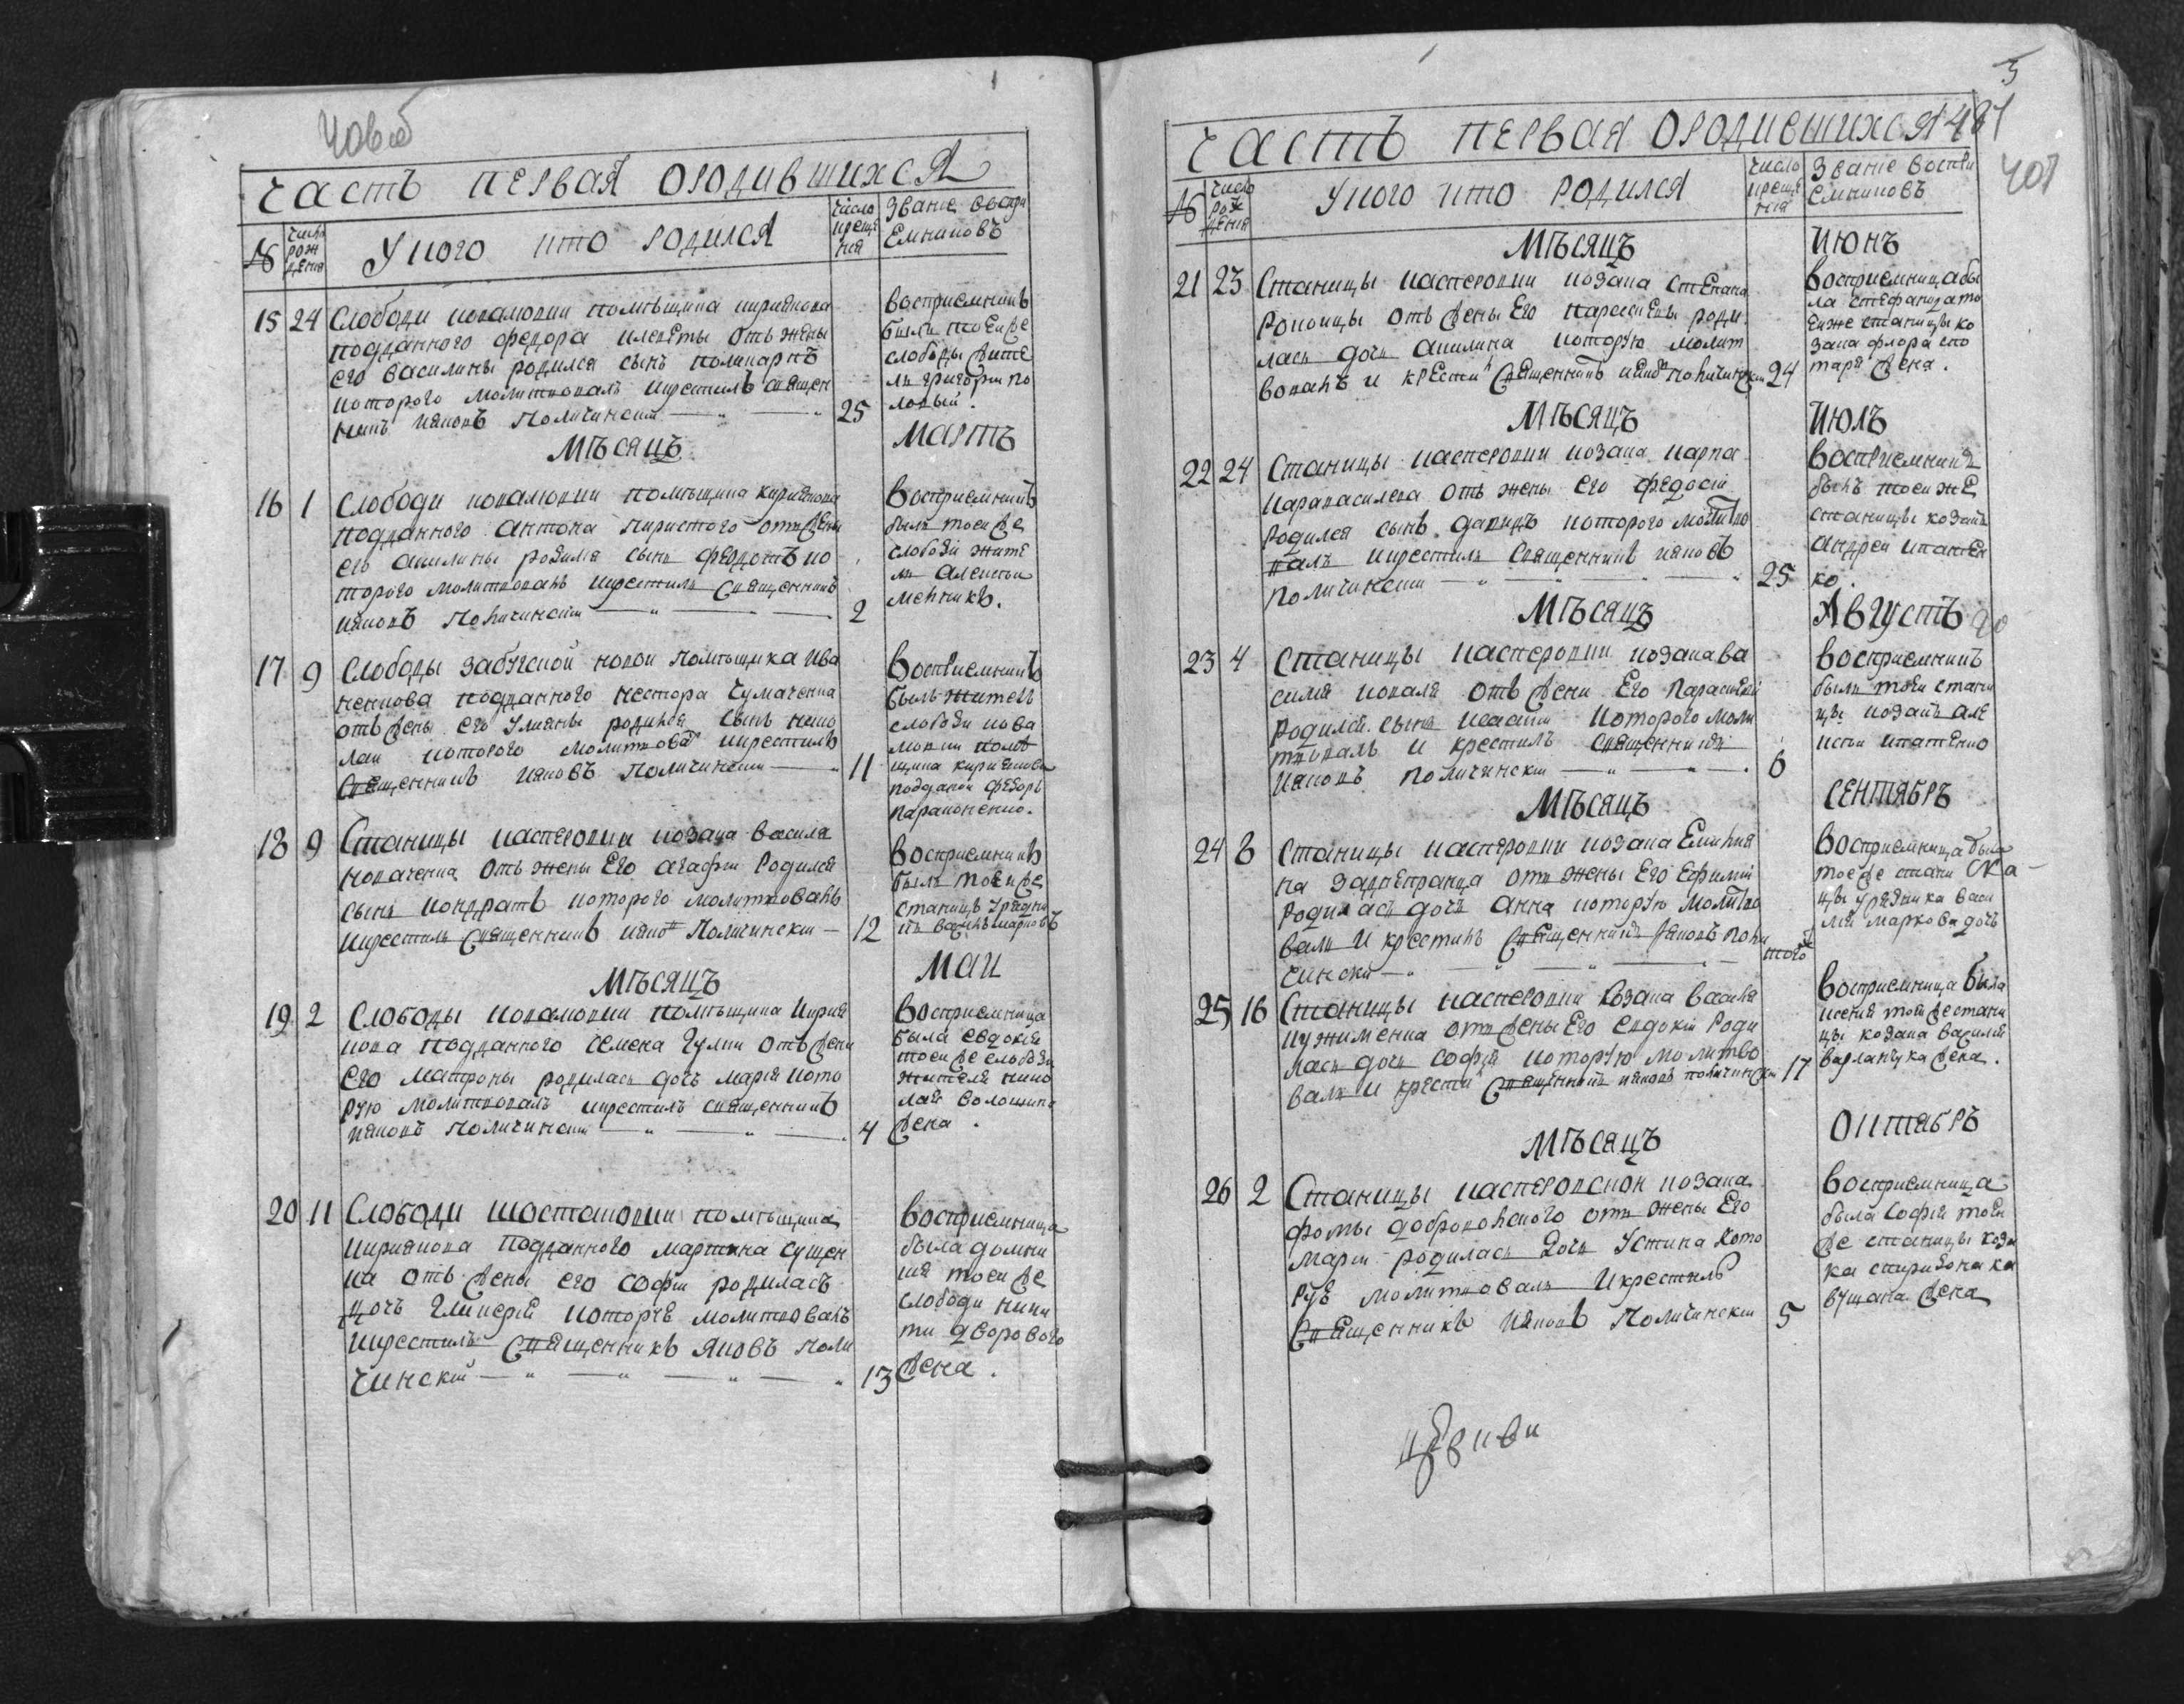 часть первая ородившихся
№
число рож дения
Уного кто родился
число креще ния
Званіе воспри емниковъ
15 24 Слободи ковалювки помѣщика кириякова
подданного федора
отъ жены
его василины родился сынъ поликарпъ
которого молитвовалъ икрестилъ священ
никъ Іяковъ Поличинскій 25
восприемникъ
былъ тоей же
слободы жите
ль григорій по
ловый.
Мѣсяцъ Мартъ
16 1 Слободи ковалювки помѣщика кириякова
подданного антона
отъ жени
его акилины родился сынъ федотъ ко
торого молитвовалъ икрестилъ Священникъ
Іяковъ Поличинскій 2
Восприемникъ
былъ тоей же
слободи жите
ль алексѣй
мельникъ.
17 9 Слободы забугской новой помѣщика ива
ненкова подданного нестора чумаченка
отъ жены его Улияны родился сынъ нико
лай которого молитвовалъ икрестилъ
Священникъ Іяковъ Поличинскій 11
Восприемникъ
былъ житель
слободи кова
лювки помѣ
щика кириякова
подданой федоръ
парапоненко.
18 9 Станицы касперовки козака василя
коваченка отъ жены Его агафіи Родился
сынъ кондратъ которого молитвовалъ
икрестилъ Священникъ Іяковъ Поличинскій 12
восприемникъ
былъ тоей же
станицы Урядни
къ василь марковъ
Мѣсяцъ Маи
19 2 Слободы ковалювки помѣщика Кирия
кова подданного семена гулки отъ жены
его матроны родилась дочь марія кото
рую молитвовалъ икрестилъ священникъ
Іяковъ Поличинскій 4
восприемница
была евдокія
тоей же слободи
жителя нико
лая волошина
жена.
20 11 Слободи шостаковки помѣщика
Кириякова подданного мартина сущен
ка отъ жены его софіи родилась
дочь гликерія которуе молитвовалъ
икрестилъ Священникъ Яковъ Поли
чинскій 13
восприемница
была домни
кія тоей же
слободи ники
ти дворового
жена.
5
401
часть первая ородившихся
№
число рож дения
Уного кто родился
число креще ния
Званіе воспри емниковъ
Мѣсяцъ Июнъ
21 23 Станицы касперовки козака Степана
отъ жены Его параскевы роди
лась дочь акилина которую молит
вовалъ и крести Священникъ Іяковъ Поличинскій 24
восприемница бы
ла стефанида то
ейже станицы ко
зака флора
жена.
Мѣсяцъ Июлъ
22 24 Станицы касперовки козака карпа
каравасилева отъ жены его федосіи
родился сынъ давидъ которого молитво
валъ икрестилъ Священникъ Іяковъ
поличинскій 25
восприемникъ
былъ тоей же
станицы козакъ
андрей ипатен
ко.
Мѣсяцъ Августъ
23 4 Станицы касперовки козака ва
силия коваля отъ жени Его параскевіи
родился сынъ исаакій Которого моли
твовалъ и крестилъ священникъ
Іяковъ Поличинскій 6
восприемникъ
былъ тоей стани
цы козакъ але
ксѣй ипатенко
Мѣсяцъ Сентябръ
24 8 Станицы касперовки козака
на заднепранца отъ жены Его Ефимій
родилась дочь анна которую молитво
валъ и крестилъ Священникъ Іяковъ поли
чинскій того ж
восприемница была
тоеже стани
цы урядника васи
лия маркова дочь
25 16 Станицы касперовки козака василя
кужименка отъ жены Его евдокіи Роди
лась дочь софія которую молитво
валъ и крести Священникъ Іяковъ поличинскій 17
восприемница была
ксенія тойжестани
цы козака василия
варланука жена.
Мѣсяцъ Октябръ
26 2 Станицы касперовской козака
фомы доброволского отъ жены Его
маріи родилась дочь Устина Кото
руе молитвовалъ Икрестилъ
Священникъ Іяковъ Поличинскій 5
восприемница
была софія тоей
же станицы коза
ка спиридона ка
вушана жена